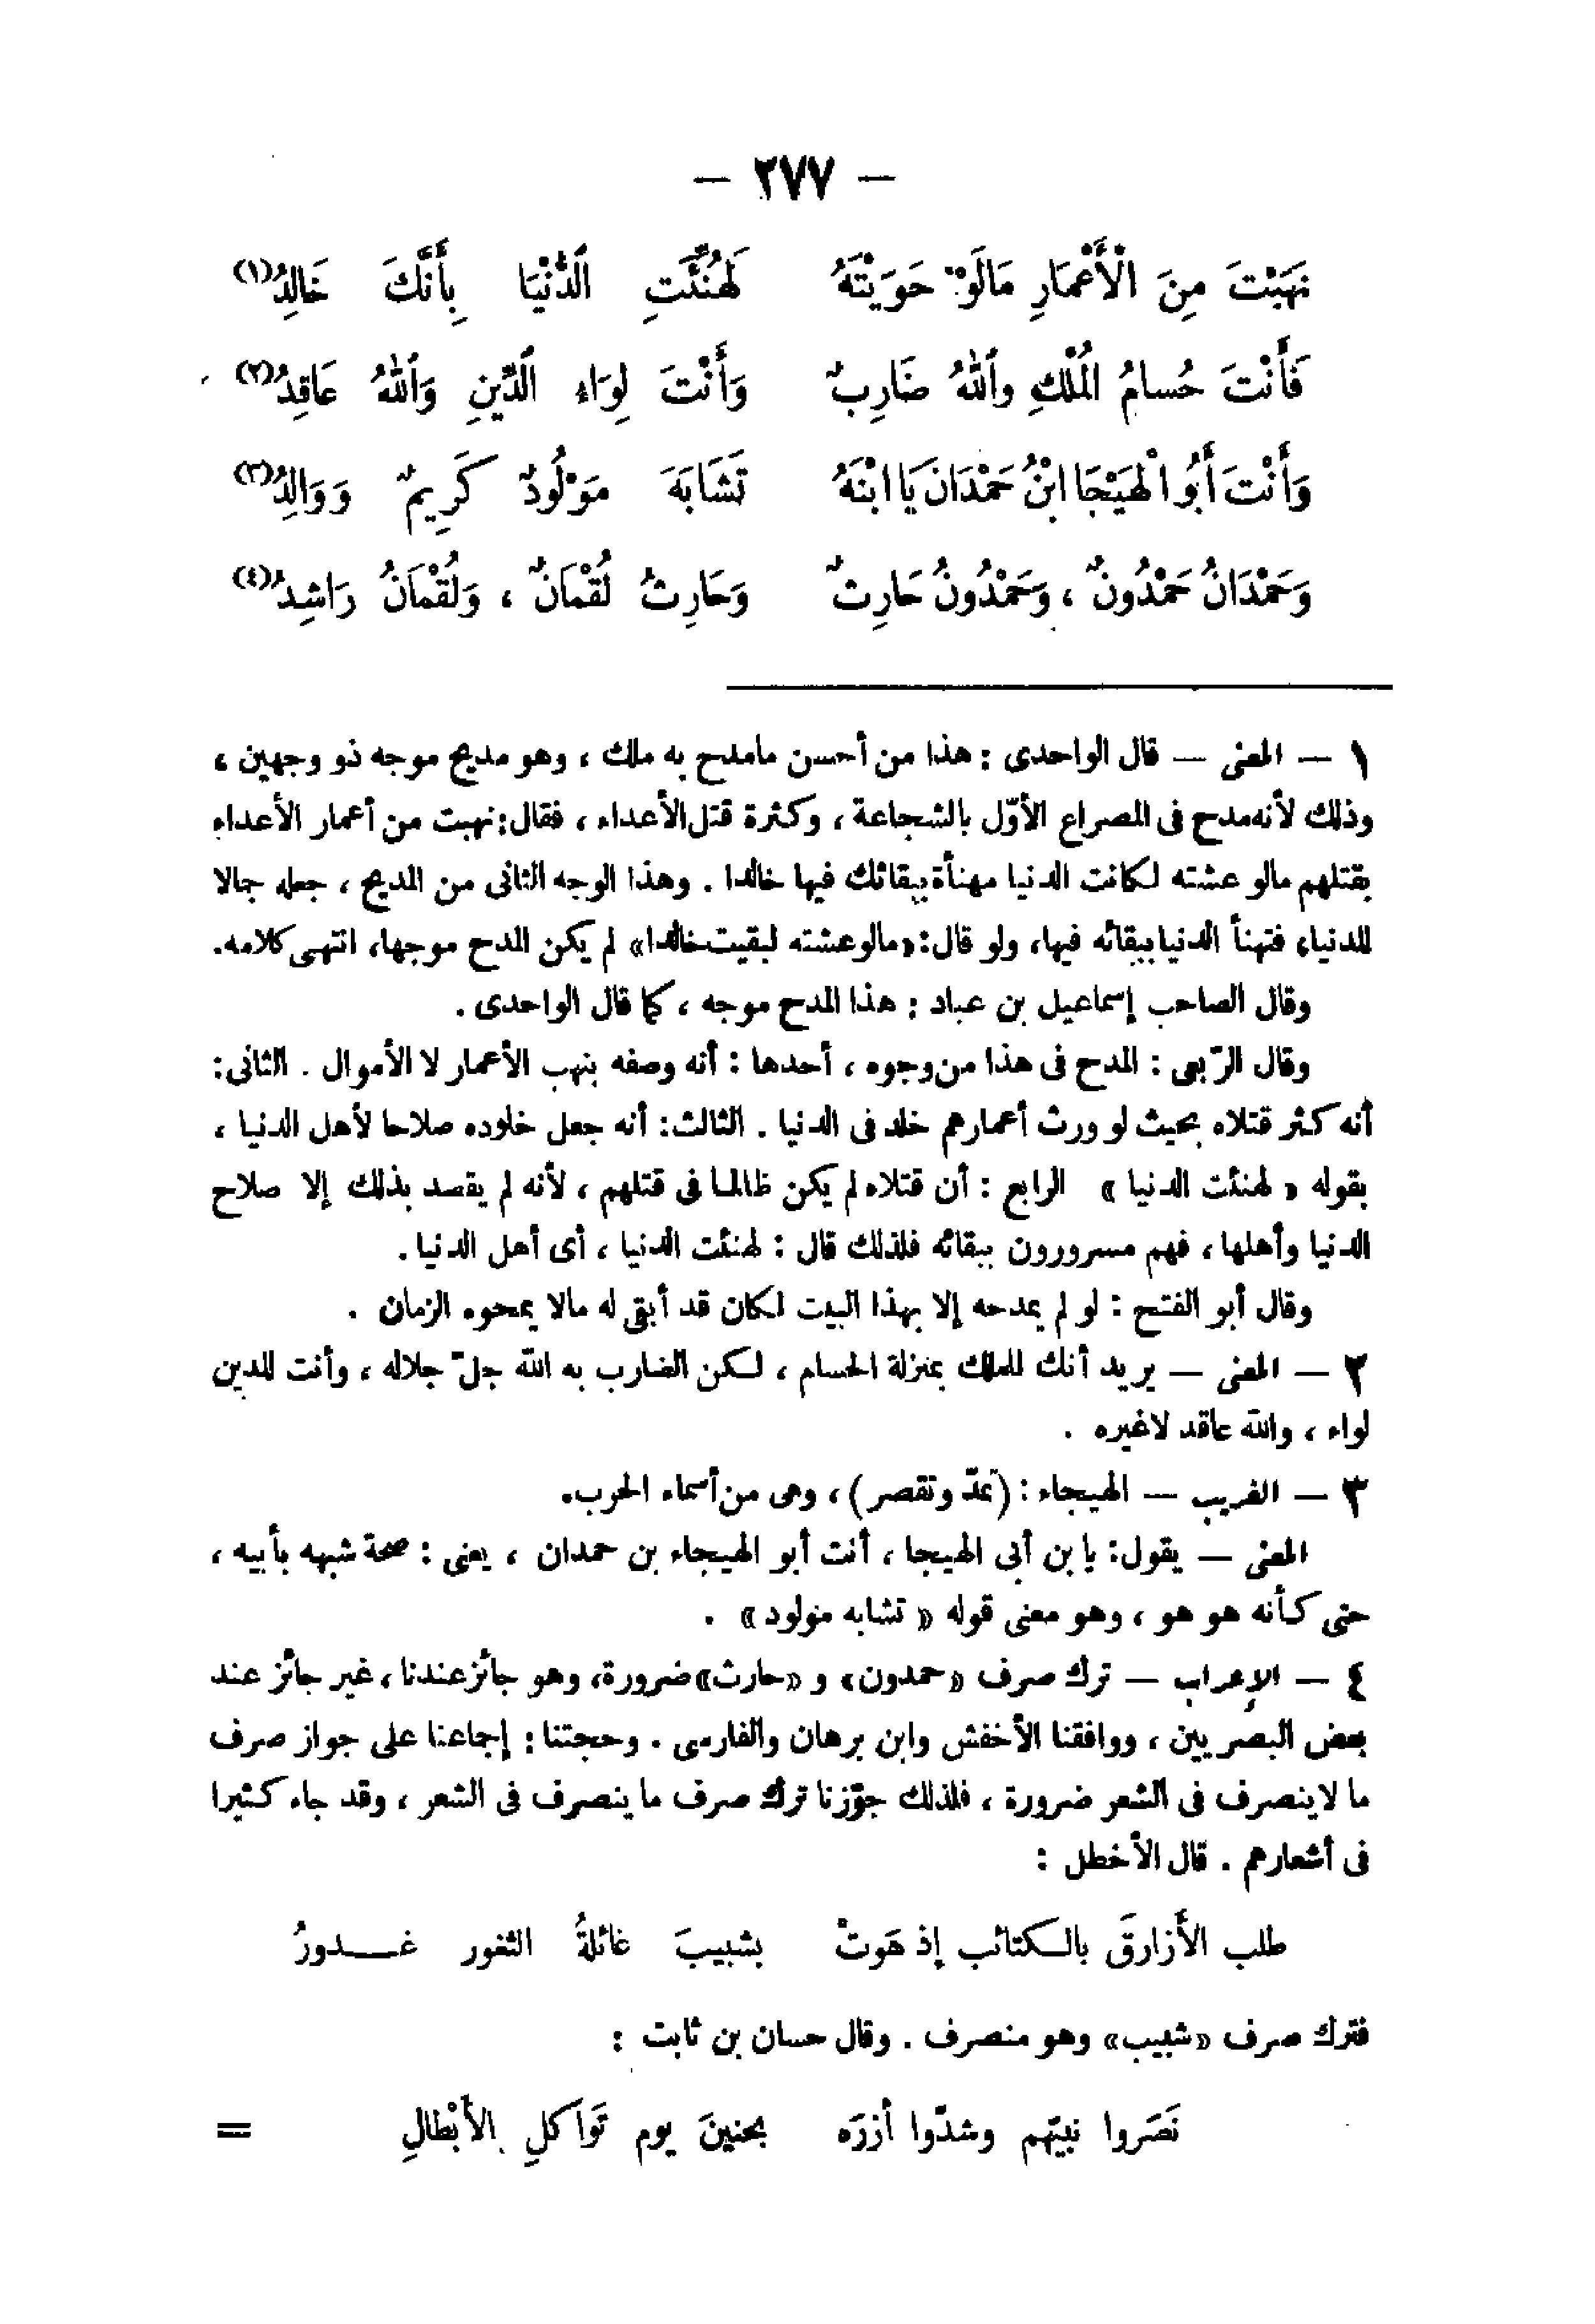 — ٢٧٧ —
نَهَبْتَ مِنَ الْأَعْمَارِ مَالَوْ حَوَيْتَهُ لَهُنِّئَتِ ٱلدُّنْيَا بِأَنَّكَ خَالِدُ(١)
فَأَنْتَ حُسامُ الْمُلْكِ وٱللهُ ضَارِبٌ وَأَنْتَ لِوَاءُ ٱلدِّينِ وَٱللهُ عَاقِدُ(٢)
وَأَنْتَ أَبُو الْهَيْجَا ابْنُ حَمْدَانَ يَا ابْنَهُ تَشَابَهَ مَوْلُودٌ كَرِيمٌ وَوَالِدُ(٣)
وَحَمْدَانُ حَمْدُونٌ ، وَحَمْدُونُ حَارِثٌ وَحَارِثُ لُقْمَانٌ ، وَلُقْمَانُ رَاشِدُ(٤)
١ — المعنى — قال الواحدى : هذا من أحسن مامدح به ملك ، وهو مديح موجه ذو وجهين ،
وذلك لأنه مدح فى المصراع الأوّل بالشجاعة ، وكثرة قتل الأعداء ، فقال: نهبت من أعمار الأعداء
بقتلهم مالو عشته لكانت الدنيا مهنأة ببقائك فيها خالدا . وهذا الوجه الثانى من المديح ، جعله جمالا
للدنيا، فتهنأ الدنيا ببقائه فيها، ولو قال: «مالو عشته لبقيت خالدا» لم يكن المدح موجها، انتهى كلامه.
وقال الصاحب إسماعيل بن عباد : هذا المدح موجه ، كما قال الواحدى .
وقال الرّبعى : المدح فى هذا من وجوه ، أحدها : أنه وصفه بنهب الأعمار لا الأموال . الثانى :
أنه كثر قتلاه بحيث لو ورث أعمارهم خلد فى الدنيا . الثالث: أنه جعل خلوده صلاحا لأهل الدنيا ،
بقوله « لهنئت الدنيا » الرابع : أن قتلاه لم يكن ظالما فى قتلهم ، لأنه لم يقصد بذلك إلا صلاح
الدنيا وأهلها ، فهم مسرورون ببقائه فلذلك قال : لهنئت الدنيا ، أى أهل الدنيا .
وقال أبو الفتح : لو لم يمدحه إلا بهذا البيت لكان قد أبقى له مالا يمحوه الزمان .
٢ — المعنى — يريد أنك للملك بمنزلة الحسام ، لكن الضارب به الله جلّ جلاله ، وأنت للدين
لواء ، والله عاقد لاغيره .
٣ — الغريب — الهيجاء : (تمدّ وتقصر) ، وهى من أسماء الحرب.
المعنى — يقول: يا بن أبى الهيجا ، أنت أبو الهيجاء بن حمدان ، يعنى : صحة شبهه بأبيه ،
حتى كأنه هو هو ، وهو معنى قوله « تشابه مولود » .
٤ — الإعراب — ترك صرف «حمدون» و «حارث» ضرورة، وهو جائز عندنا ، غير جائز عند
بعض البصريين ، ووافقنا الأخفش وابن برهان والفارسى . وحجتنا : إجماعنا على جواز صرف
ما لا ينصرف فى الشعر ضرورة ، فلذلك جوّزنا ترك صرف ما ينصرف فى الشعر ، وقد جاء كثيرا
فى أشعارهم . قال الأخطل :
طلب الأَزارقَ بالكتائب إذ هَوتْ بشبيبَ غائلةُ الثغور غـــدورُ
فترك صرف «شبيب» وهو منصرف . وقال حسان بن ثابت :
نَصَروا نبيّهم وشدّوا أزرَه بحنينَ يوم تَوَاكلِ الأَبْطالِ =